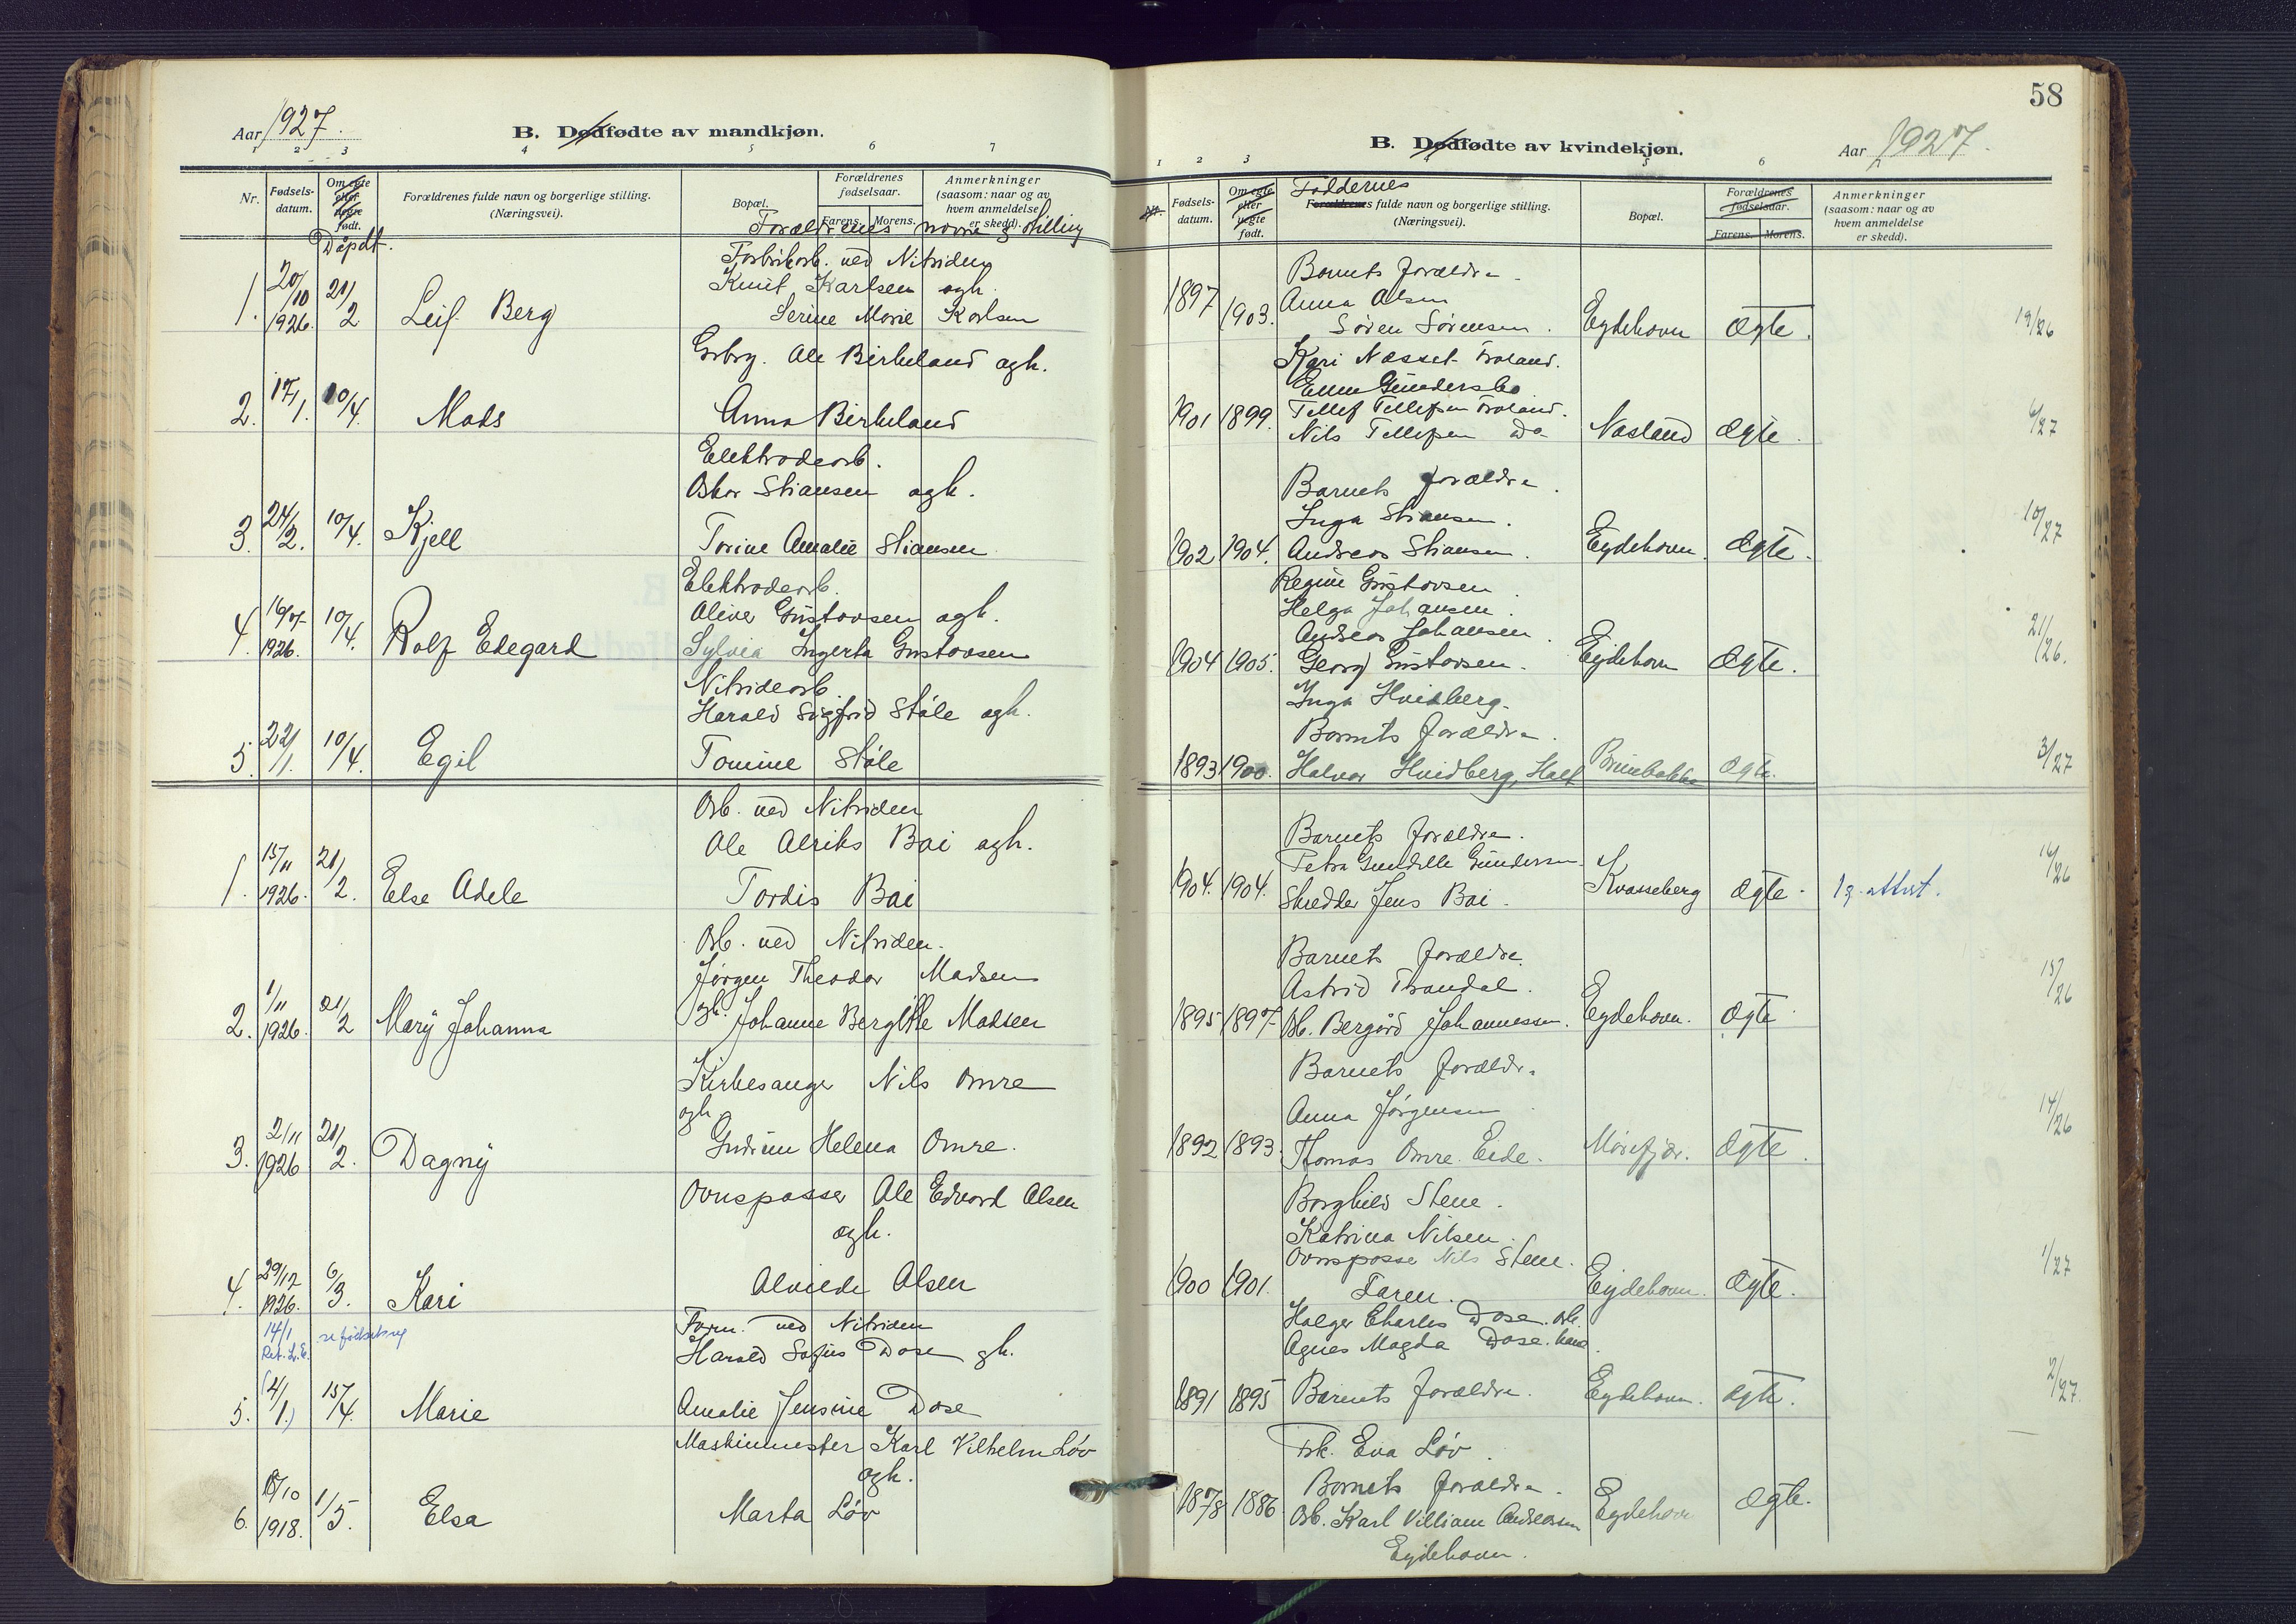 Aar 1927.
B. Dødfødte av mandkjøn.
1 2 3 4 5 6 7
Nr.
Fødsels-
datum.
Om egte
eller
uegte
født.
Døpdt.
Forældrenes fulde navn og borgerlige stilling.
(Næringsvei).
Bopæl.
Forældrenes
fødselsaar.
Farens. Morens.
Anmerkninger
(saasom: naar og av
hvem anmeldelse
er skedd).
Forældrenes navne og stilling
Fabrikarb. ved Nitriden
Knut Karlsen agh.
1. 20/10 1926. 21/2 Leif Berg Serine Marie Karlsen
Ole Birkeland agh.
2. 17/1. 10/4. Mads Anna Birkeland
Elektrodearb.
Oskar Stiansen agh.
3. 24/2. 10/4. Kjell Torine Amalie Stiansen
Elektrodearb.
Oliver Gustavsen agh.
4. 16/7 1926. 10/4. Rolf Edegard Sylvia Ingerta Gustavsen
Nitridearb.
Harald Sigfrid Ståle agh.
5. 22/1. 10/4. Egil Tomine Ståle
Arb. ved Nitriden
Ole Alriks Bai agh.
1. 15/11 1926. 21/2. Else Adele Tordis Bai
Arb. ved Nitriden.
Jørgen Theodor Madsen
2. 1/11 1926. 21/2 Mary Johanna agh. Johanne Bergitte Madsen
Kirkesanger Nils Omre
agh.
3. 2/11 1926 21/2. Dagny Gudrun Helena Omre.
Ovnspasser Ole Edvard Olsen
agh.
4. 29/12 1926. 6/3. Kari Alvilde Olsen
14/1 se fødselsreg
Ret. L. E.
Form. ved Nitriden
Harald Sofus Dose gh.
5. (4/1.) 15/4. Marie Amalie Jensine Dose
Maskinmester Karl Vilhelm Løv
agh.
6. 18/10 1918. 1/5. Elsa Marta Løv
58
B. Dødfødte av kvindekjøn.
Aar 1927.
1 2 3 5 6
Nr.
Fødsels-
datum.
Om egte
eller
uegte
født.
Faddernes
Forældrenes fulde navn og borgerlige stilling.
(Næringsvei).
Bopæl.
Forældrenes
fødselsaar.
Farens. Morens.
Anmerkninger
(saasom: naar og av
hvem anmeldelse
er skedd).
Barnets forældre
Anna Olsen
1897 1903. Søren Sørensen. Eydehavn Ægte. 19/26
Kari Næsset Froland.
Emma Gundersbo
Tellef Tellefsen Froland.
1901 1899. Nils Tellefsen do Næsland Ægte. 6/27
Barnets forældre.
Inga Stiansen.
1902 1904. Andreas Stiansen. Eydehavn. Ægte. 10/27
Regine Gustavsen
Helga Johansen.
Andreas Johansen.
1904 1905. Georg Gustavsen. Eydehavn Ægte. 21/26.
Inga Hvidberg.
Barnets forældre.
1893 1900. Halvor Hvidberg, Holt Ægte. 3/27
Barnets forældre.
Petra Gundersen
1904. 1904. Skredder Jens Bai. Kvasseberg Ægte. 1 g. attest. 16/26
Barnets forældre.
Astrid Trondal.
1895 1897 Arb. Bergård Johannessen. Eydehavn. Ægte 15/26
Barnets forældre
Anna Jørgensen
1892 1893. Thomas Omre Eide. Morefjær. Ægte. 14/26
Borghild Stene.
Katrina Nilsen.
Ovnspasser Nils Stene.
1900 1901. Faren. Eydehavn. Ægte. 1/27
Holger Charles Dose. arb.
Agnes Magda Dose.
1891 1895 Barnets forældre. Eydehavn. Ægte. 2/27.
Frk. Eva Løv.
Barnets forældre.
1878 1886 Arb. Karl Villiam Andreassen Eydehavn Ægte.
Eydehavn.